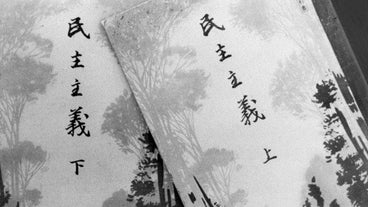 民主主義 下
民主主義 上